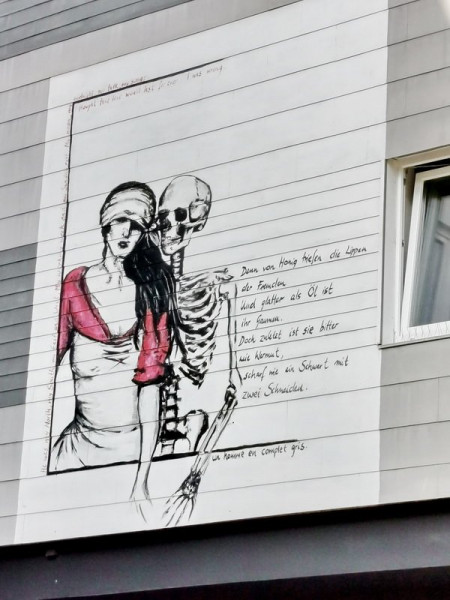 I was wrong
Denn von Honig triefen die Lippen
der Fremden
Und glatter als Öl ist
ihr Gaumen.
Doch zuletzt ist sie bitter
wie Wermut,
scharf wie ein Schwert mit
zwei Schneiden.
un homme en complet gris.